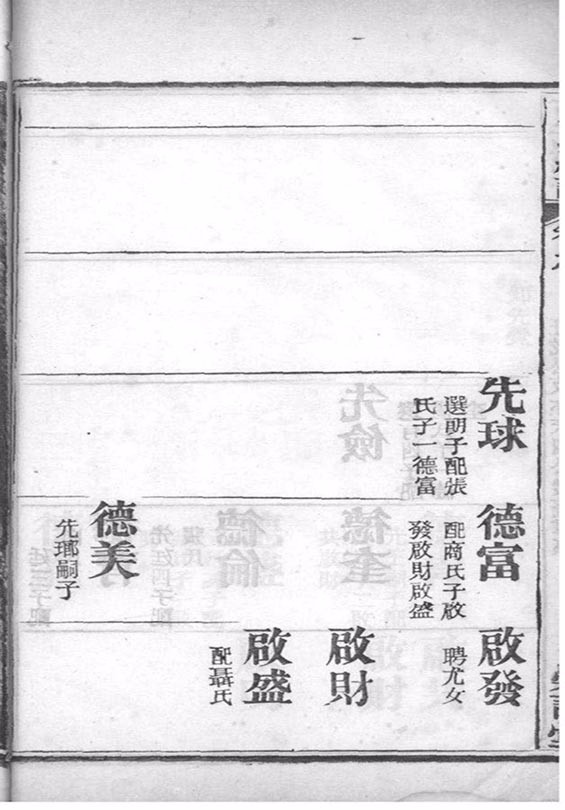 先球
選朝子配張
氏子一德富
德富
配商氏子啟
發啟財啟盛
啟發
聘尤女
啟財
啟盛
配聶氏
德美
先瑯嗣子